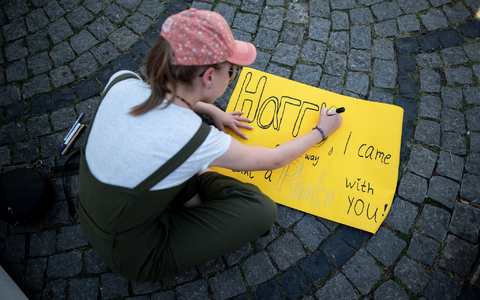 Harr
way, I came
a Photo
with
YOU!